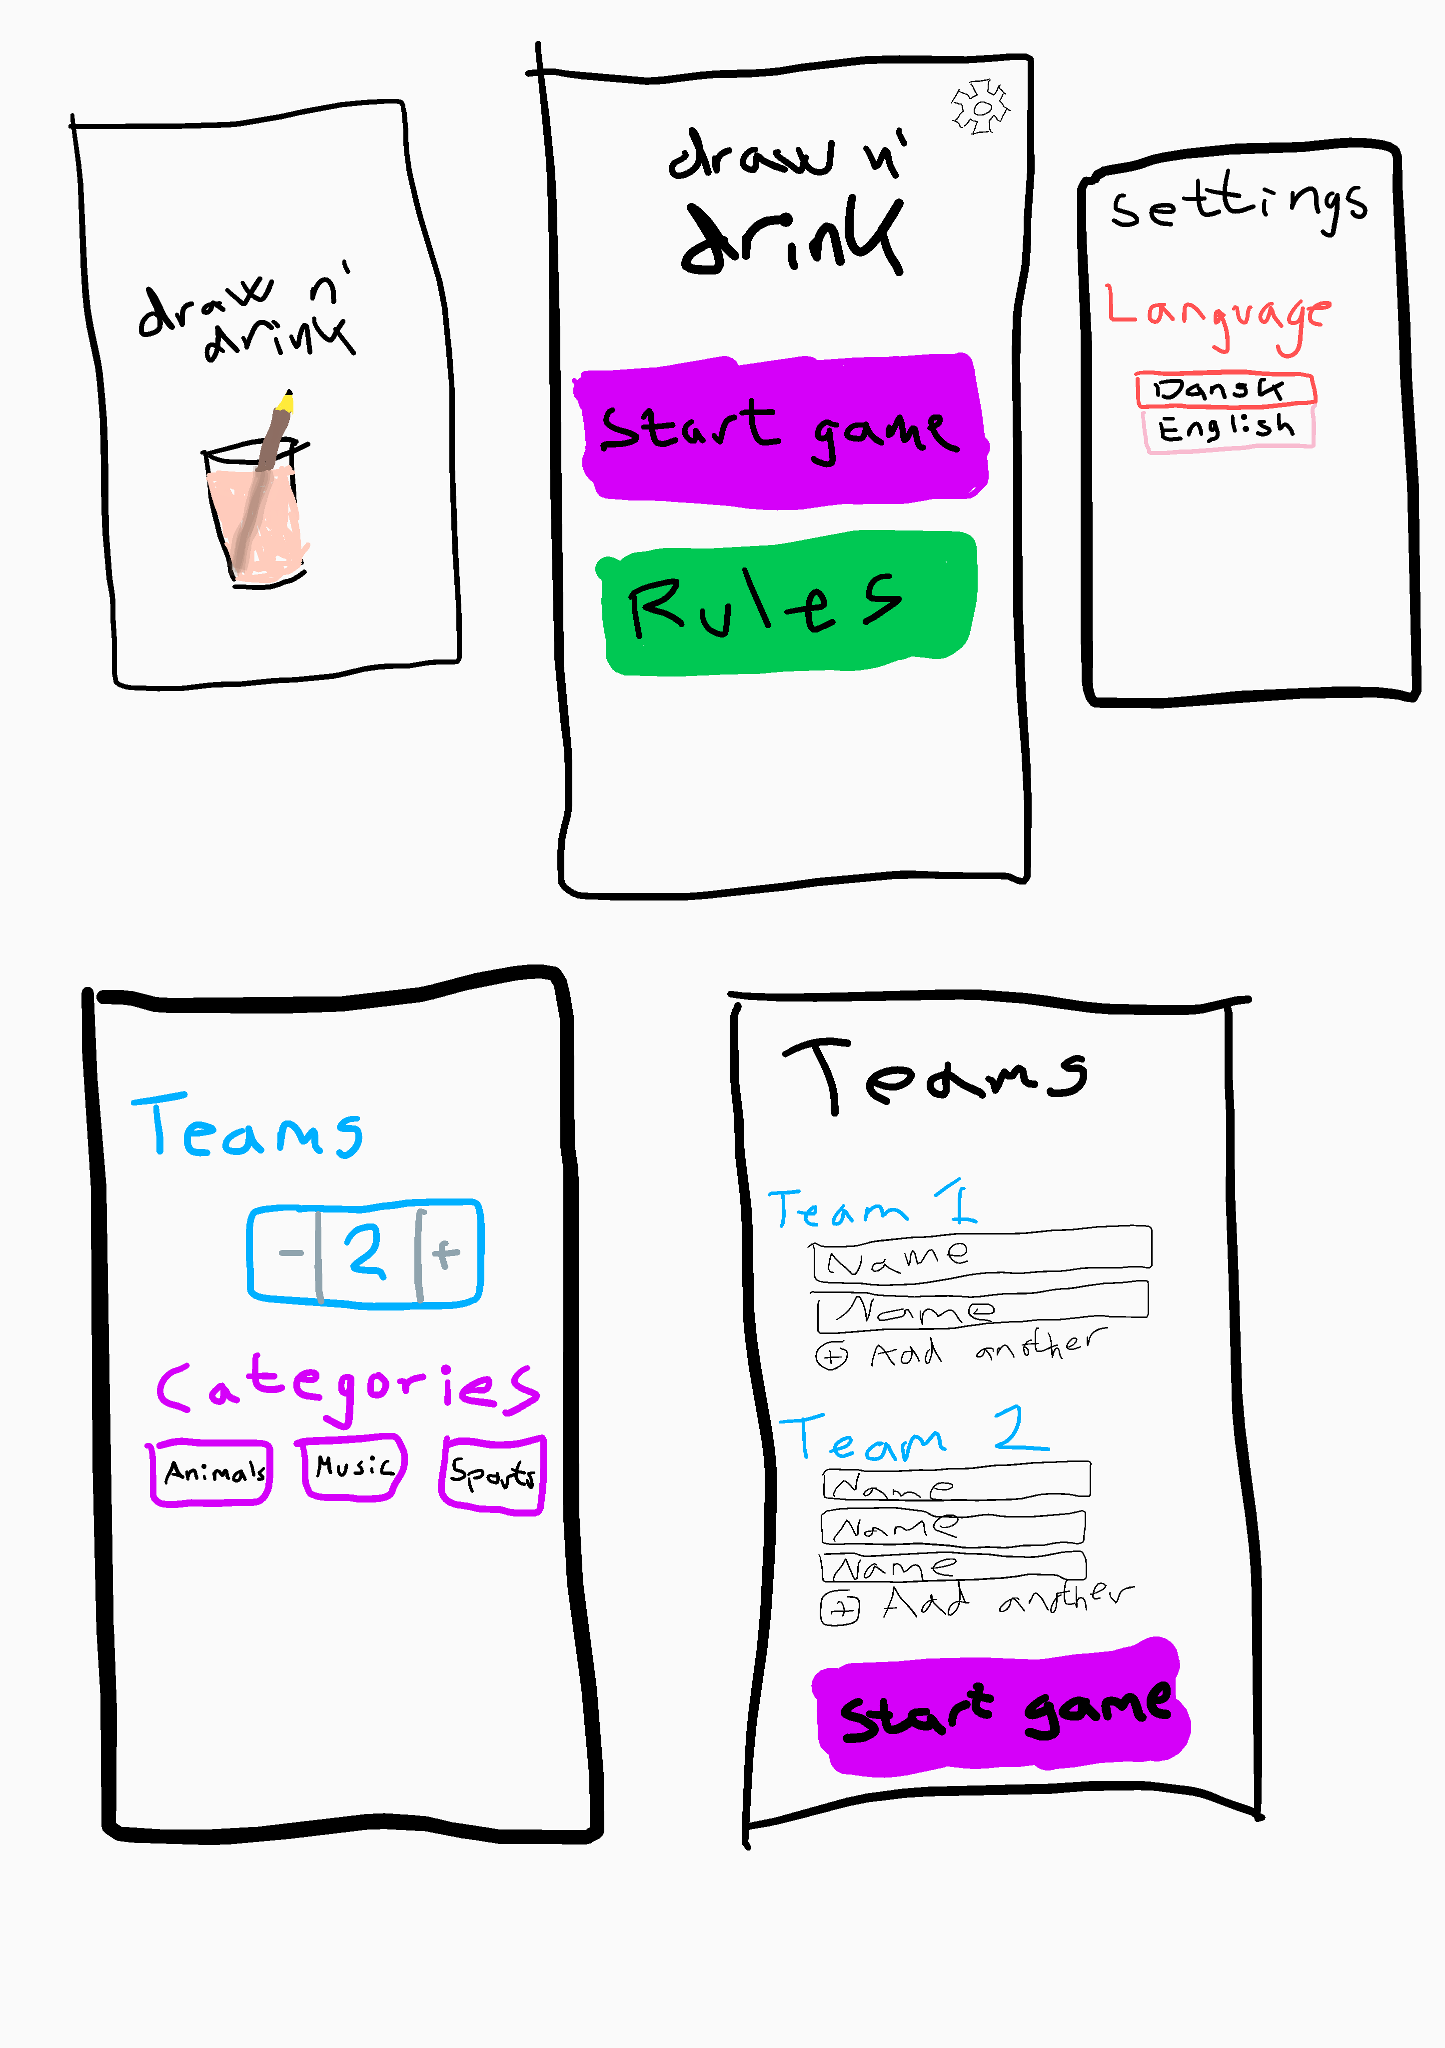 draw n'
drink
draw n'
drink
Start game
Rules
Settings
Language
Dansk
English
Teams
- 2 +
Categories
Animals Music Sports
Teams
Team 1
Name
Name
+ Add another
Team 2
Name
Name
Name
+ Add another
Start game